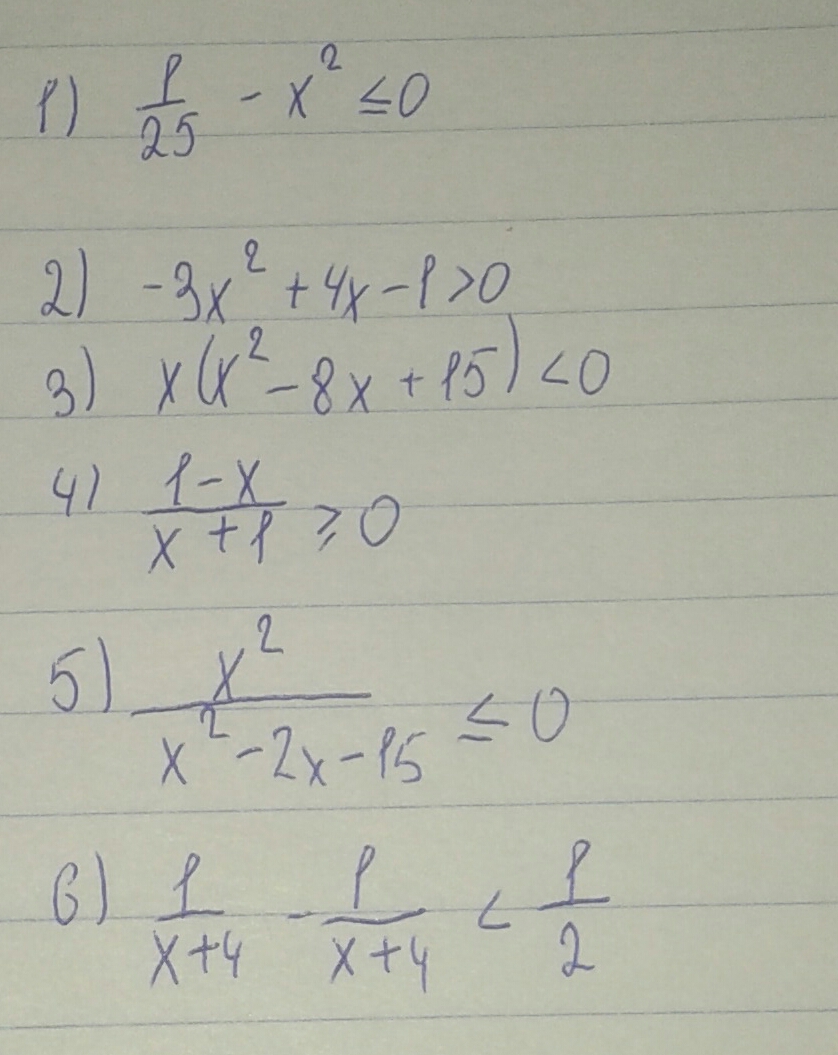 1) 1/25 - x² ≤ 0
2) -3x² + 4x - 1 > 0
3) x(x² - 8x + 15) < 0
4) (1-x)/(x+1) ≥ 0
5) x²/(x² - 2x - 15) ≤ 0
6) 1/(x+4) - 1/(x+4) < 1/2